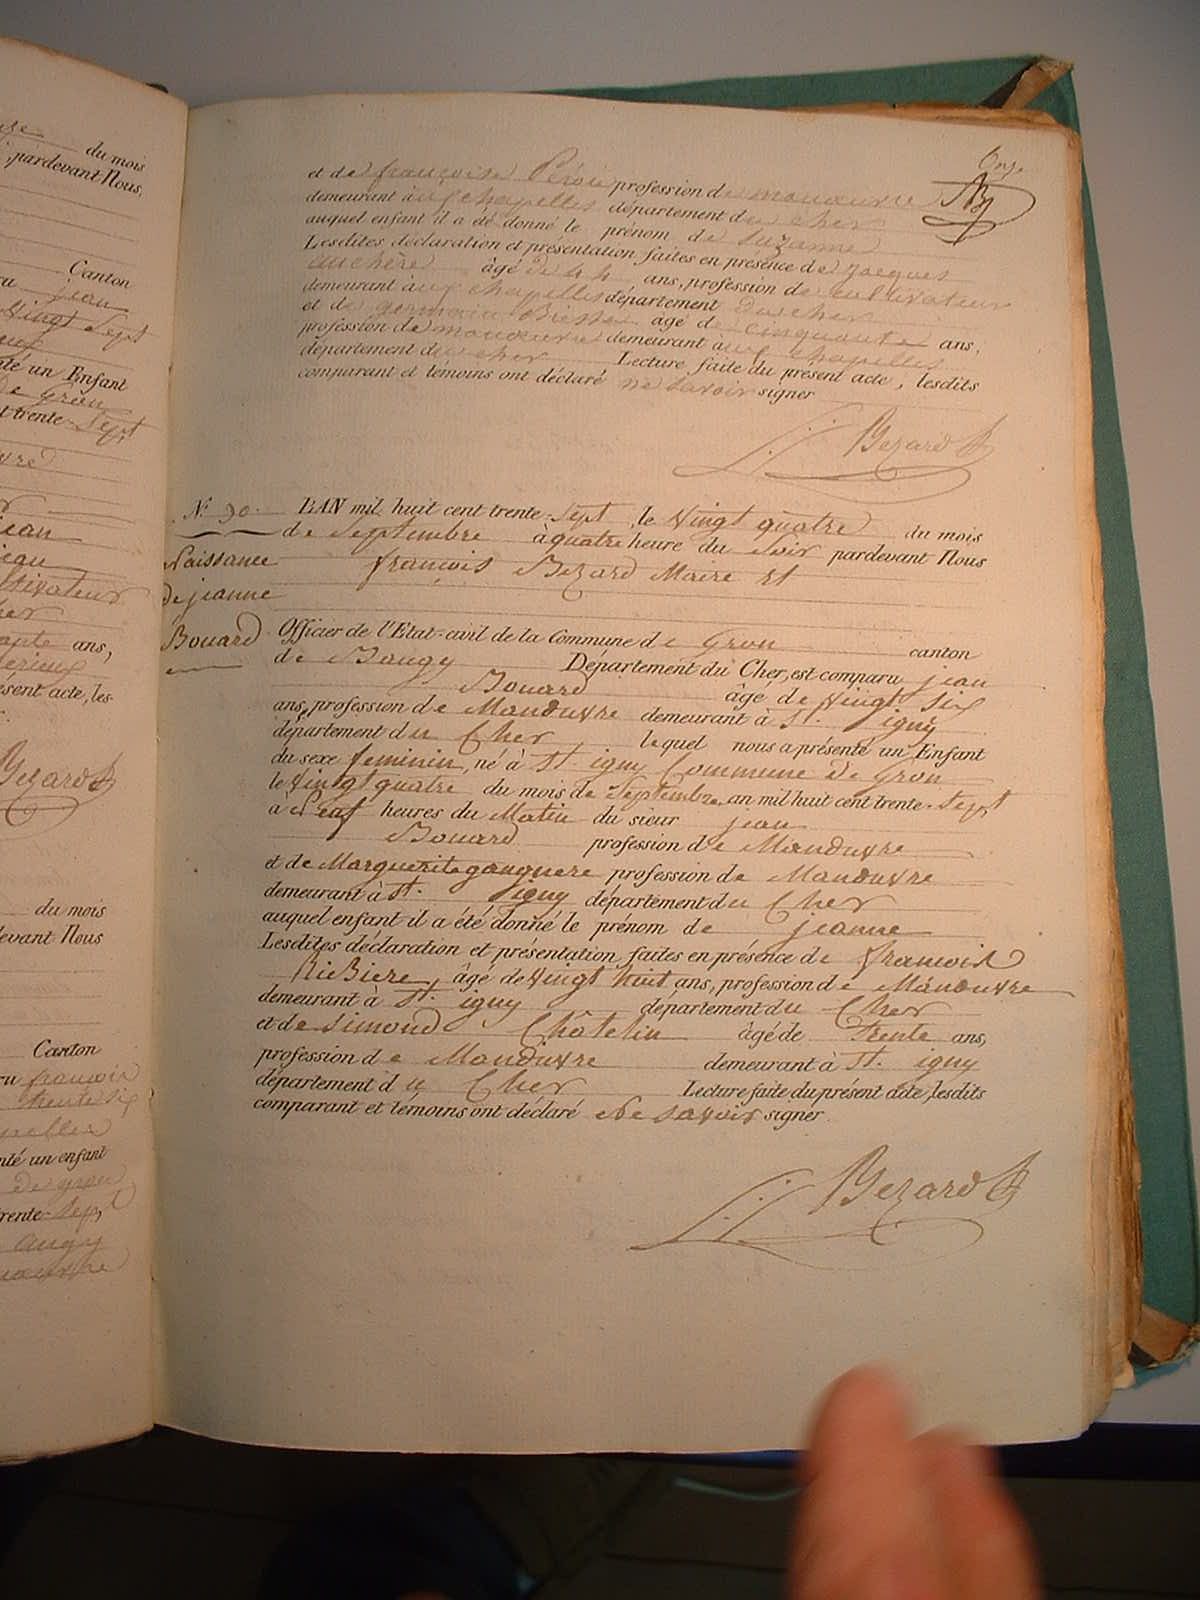 du mois
, pardevant Nous,
Canton
jean
Vingt Sept
té un Enfant
de Gron
t trente-Sept
jean
ans,
ésent acte, les-
Bezard
du mois
levant Nous
Canton
ru francois
trente six
nté un enfant
trente-Sept
augy
Onze
et de francoise profession de manoeuvre
demeurant aux chapelles département du cher
auquel enfant il a été donné le prénom de Suzanne
Lesdites déclaration et présentation faites en présence de jacques
âgé de 44 ans, profession de cultivateur
demeurant aux chapelles département du cher
et de germain âgé de cinquante ans,
profession de manoeuvre demeurant aux chapelles
département du cher Lecture faite du présent acte, lesdits
comparant et témoins ont déclaré ne savoir signer
Bezard
N.º 30. L'AN mil huit cent trente-Sept, le Vingt quatre du mois
de Septembre à quatre heure du Soir pardevant Nous
Naissance francois Bezard Maire Et
de jeanne
Bouard Officier de l'Etat-civil de la Commune de Gron canton
de Baugy Département du Cher, est comparu jean
Bouard âgé de Vingt Six
ans, profession de Manduvre demeurant à St. igny
département du Cher lequel nous a présenté un Enfant
du sexe feminin, né à St. igny Commune de Gron
le Vingt quatre du mois de Septembre an mil huit cent trente-Sept
a Neaf heures du Matin du sieur jean
Bouard profession de Manduvre
et de Marguerite gangnere profession de Manduvre
demeurant à St. igny département du Cher
auquel enfant il a été donné le prénom de jeanne
Lesdites déclaration et présentation faites en présence de francois
RieBiere, âgé de Vingt huit ans, profession de Manduvre
demeurant à St. igny département du Cher
et de Simond Châtelin âgé de Trente ans,
profession de Manduvre demeurant à St. igny
département du Cher Lecture faite du présent acte, lesdits
comparant et témoins ont déclaré Ne Savoir signer
Bezard